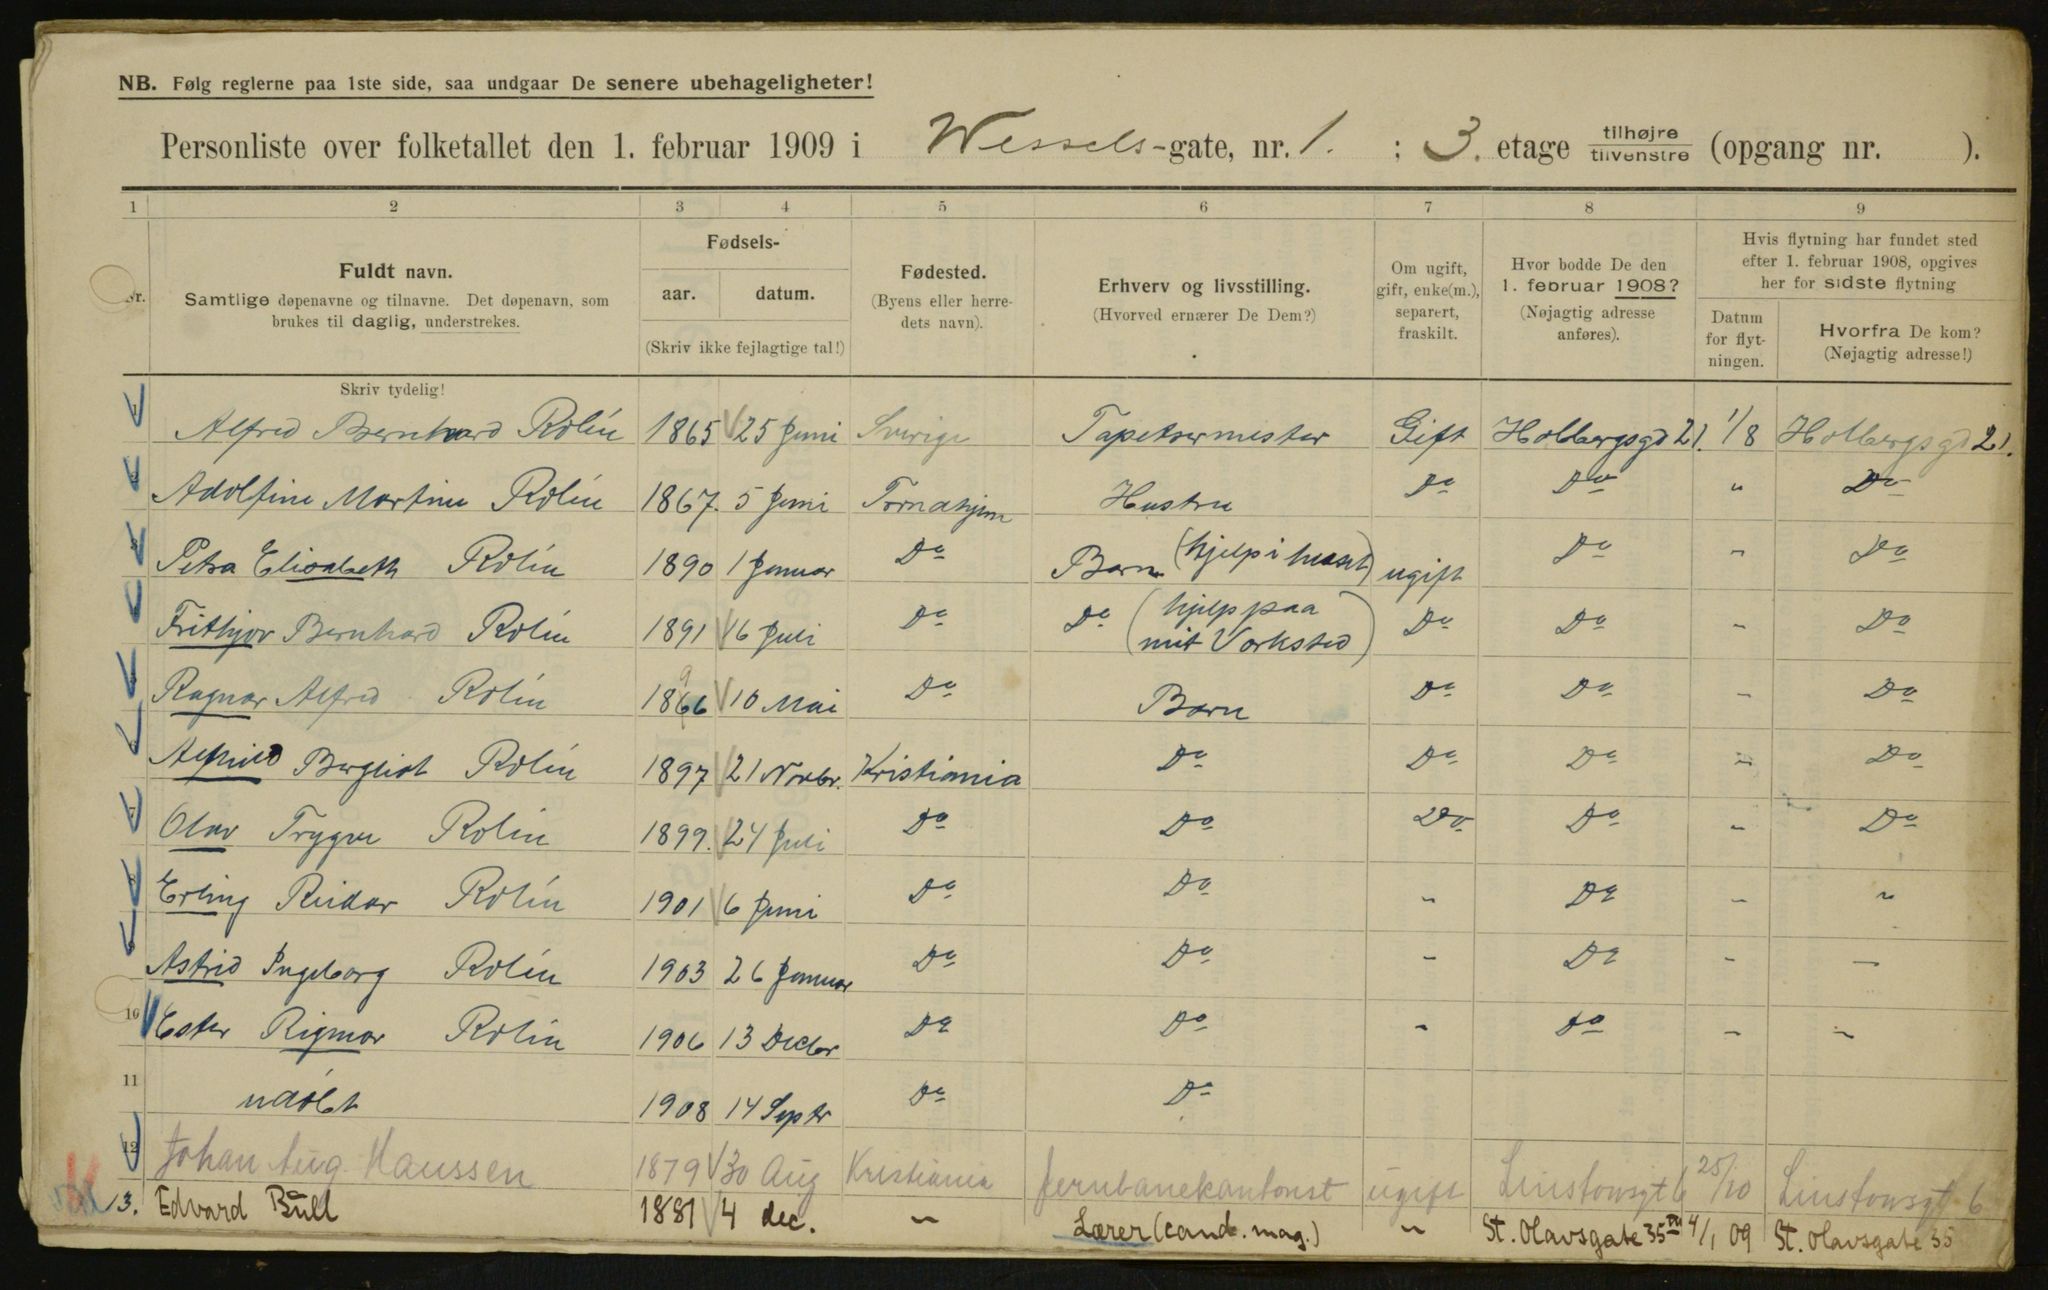 NB. Følg reglerne paa 1ste side, saa undgaar De senere ubehageligheter!
Personliste over folketallet den 1. februar 1909 i Wessels-gate, nr. 1. ; 3. etage tilhøjre tilvenstre (opgang nr. ).
1 2 3 4 5 6 7 8 9
Nr. Fuldt navn. Samtlige døpenavne og tilnavne. Det døpenavn, som brukes til daglig, understrekes. Skriv tydelig!
Fødsels- aar. datum. (Skriv ikke fejlagtige tal!)
Fødested. (Byens eller herredets navn).
Erhverv og livsstilling. (Hvorved ernærer De Dem?)
Om ugift, gift, enke(m.), separert, fraskilt.
Hvor bodde De den 1. februar 1908? (Nøjagtig adresse anføres).
Hvis flytning har fundet sted efter 1. februar 1908, opgives her for sidste flytning
Datum for flytningen. Hvorfra De kom? (Nøjagtig adresse!)
1 Alfred Bernhard Rolin 1865 25 Juni Sverige Tapetsermester Gift Holbergsgd 21. 1/8 Holbergsgd 21.
2 Adolfine Martine Rolin 1867. 5 Juni Trondhjem Hustru Do Do " Do
3 Petra Elisabeth Rolin 1890 1 Januar Do Barn (hjelp i huset) ugift Do " Do
4 Frithjov Bernhard Rolin 1891 6 Juli Do Do (hjelp paa mit Verksted) Do Do " Do
5 Ragnar Alfred Rolin 1896 10 Mai Do Barn Do Do " Do
6 Bergliot Rolin 1897 21 Novbr. Kristiania Do Do Do " Do
7 Olav Trygve Rolin 1899. 24 Juli Do Do Do Do " Do
8 Erling Reidar Rolin 1901 6 Juni Do Do " Do " "
9 Astrid Ingeborg Rolin 1903 26 Januar Do Do " Do " "
10 Ester Rigmor Rolin 1906 13 Decbr Do Do " Do " "
11 udøbt 1908 14 Septr Do Do
12 Johan Aug. Hanssen 1879 30 Aug Kristiania Jernbanekontorist ugift Linstowsgt 6 25/10 Linstowsgt 6
13. Edvard Bull 1881 4 dec. " Lærer (cand. mag.) " St. Olavsgate 35 4/1 09 St. Olavsgate 35